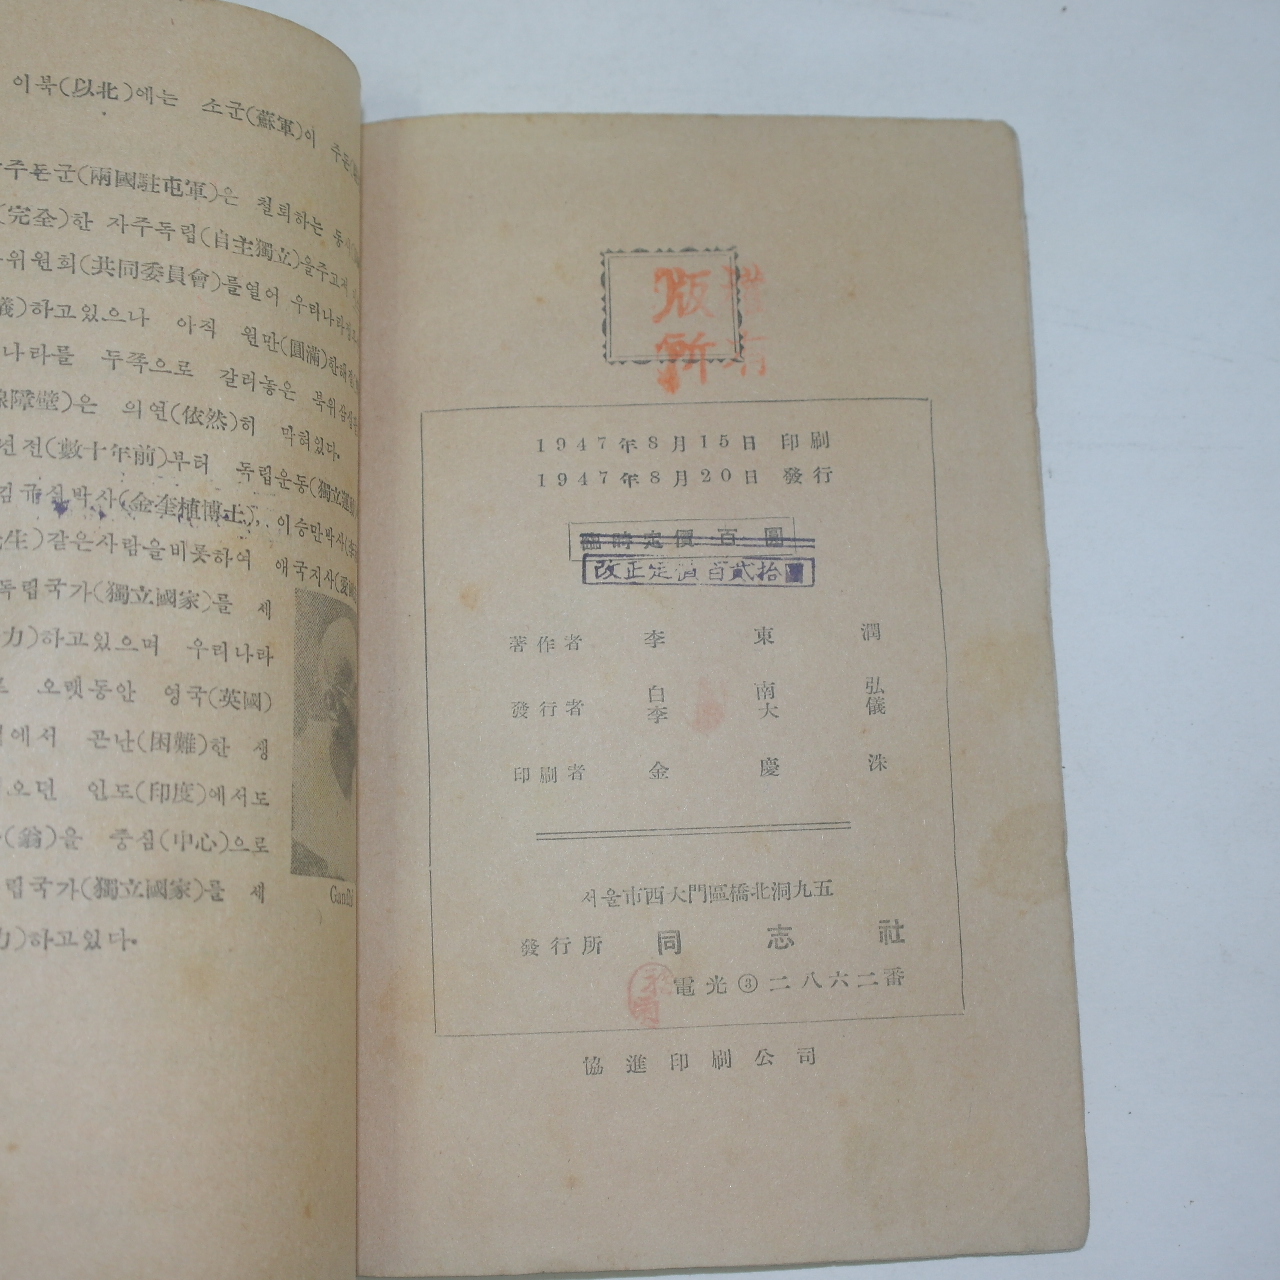 이북(以北)에는 소군(蘇軍)이 주둔
주둔군(兩國駐屯軍)은 철퇴하는 동시
(完全)한 자주독립(自主獨立)을주고저
위원회(共同委員會)를열어 우리나라
하고있으나 아직 원만(圓滿)한해결
나라를 두쪽으로 갈러놓은 북위삼십
障壁)은 의연(依然)히 막혀있다.
년전(數十年前)부터 독립운동(獨立運
김규식박사(金奎植博士), 이승만박사(李
生)같은사람을비롯하여 애국지사(愛國
독립국가(獨立國家)를 세
力)하고있으며 우리나라
오랫동안 영국(英國)
에서 곤난(困難)한 생
오던 인도(印度)에서도
(翁)을 중심(中心)으로
립국가(獨立國家)를 세
力)하고있다.
Gandhi
版權
所有
1947年8月15日 印刷
1947年8月20日 發行
臨時定價 百圓
改正定價百貳拾圓
著作者 李東潤
發行者 白南弘
李大儀
印刷者 金慶洙
서울市西大門區橋北洞九五
發行所 同志社
電光③二八六二番
協進印刷公司